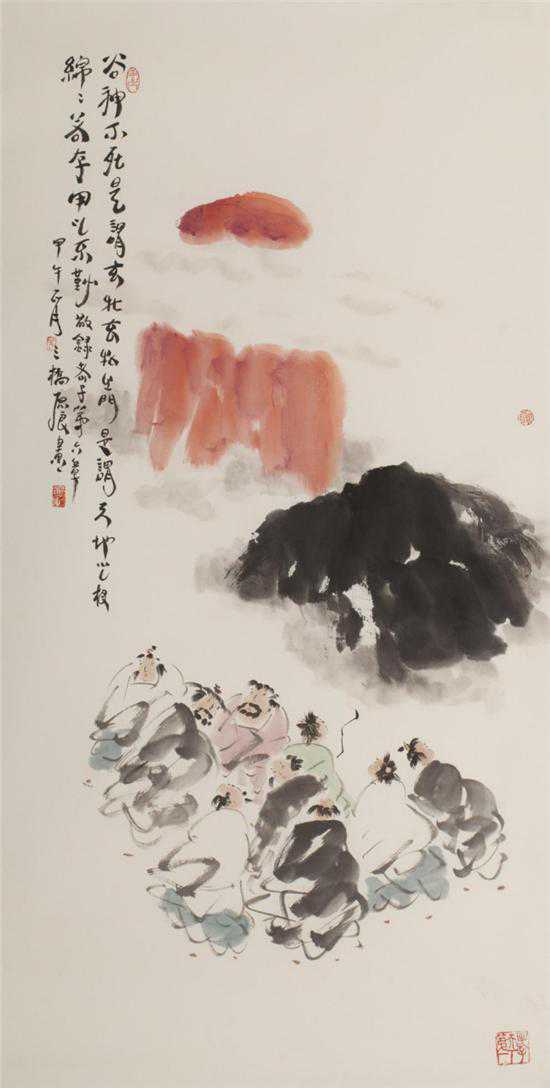 谷神不死是謂玄牝玄牝之門是謂天地之根
綿〻若存用之不勤敬錄老子第六章
甲午正月三橋居畫